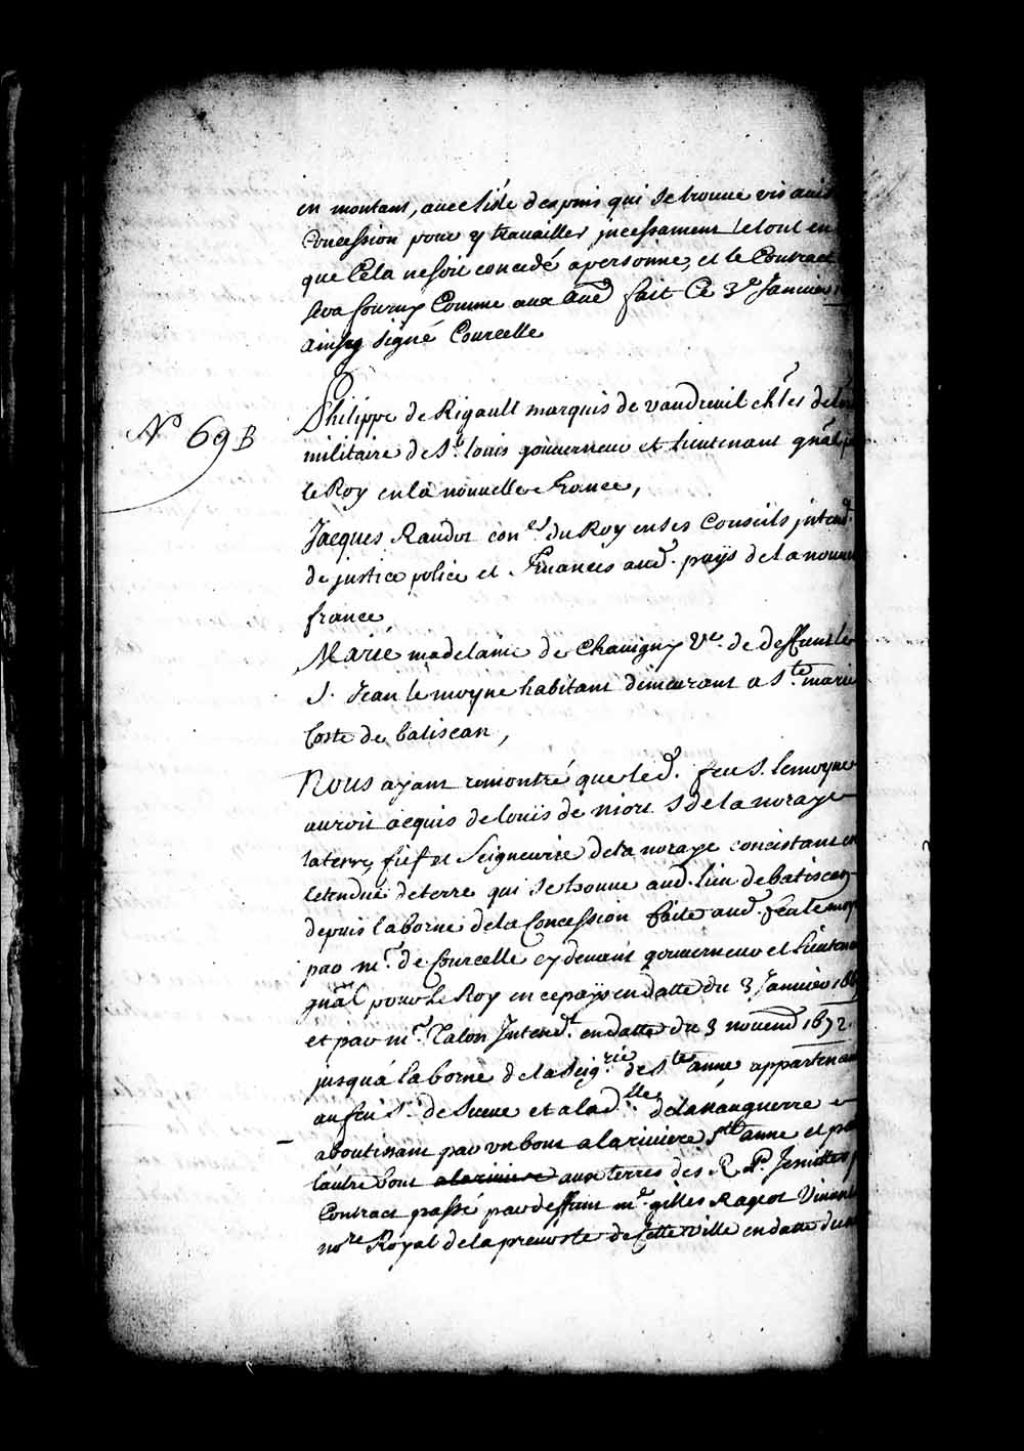 en montant, avec l'isle des pins qui se trouve vis avis
Concession pour y travailler incessament le tout en
que Cela ne soit concedé a personne, et le Contract
sera fourny Comme aux aud fait Ce 3e Janvier
ainsy signé Courcelle
N° 69 B
Philippe de Rigault marquis de vaudreuil ch.er de
militaire de St. louis gouverneur et lieutenant gnãl
le Roy en la nouvelle France,
Jacques Raudot con.er du Roy en ses Conseils intend.
de justice police et finances aud. pays de la
france
Marie madelaine de Chavigny Ve. de deffunt le
S. Jean le moyne habitant demeurant a Ste marie
Coste de batiscan,
Nous ayant remontré que led. feu S. lemoyne
auroit acquis de louis de niort S de la noraye
la terre, fief et Seigneurie de la noraye concistant en
letendue de terre qui se trouve aud. lieu de batiscan
depuis la borne de la Concession faite aud. feu
par mr. de Courcelle cy devant gouverneur et
gnãl pour le Roy en ce pays en datte du 3 Janvier
et par mr. Talon Intendt. en datte du 3 novemb 1672.
jusqu'a la borne de la Seig.rie de Ste anne appartenant
au feu Sr. de Sueve et a la d.lle de lanauguerre
aboutissant par un bout a la riviere Ste anne et
lautre bout a la riviere aux terres des R. P. Jesuittes
Contract passé par deffunt mr. gilles Rageot Vivant
no.re Royal de la prevosté de Cette ville en datte du